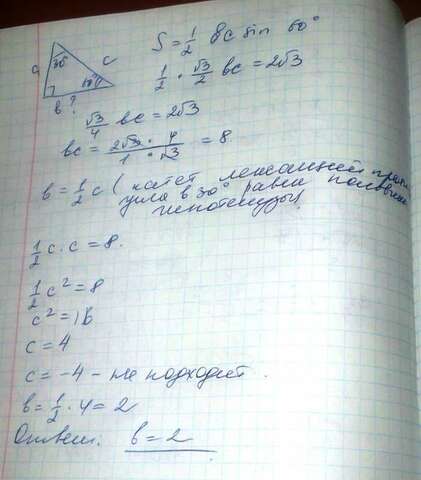 a 30° c
60°
b ?
S = 1/2 bc sin 60°
1/2 · √3/2 bc = 2√3
√3/4 bc = 2√3
bc = 2√3 · 4 / 1 · √3 = 8
b = 1/2 c ( катет лежащий
угла в 30° равен половине
гипотенузы)
1/2 c · c = 8.
1/2 c² = 8
c² = 16
c = 4
c = -4 - не подходит.
b = 1/2 · 4 = 2
Ответ: b = 2